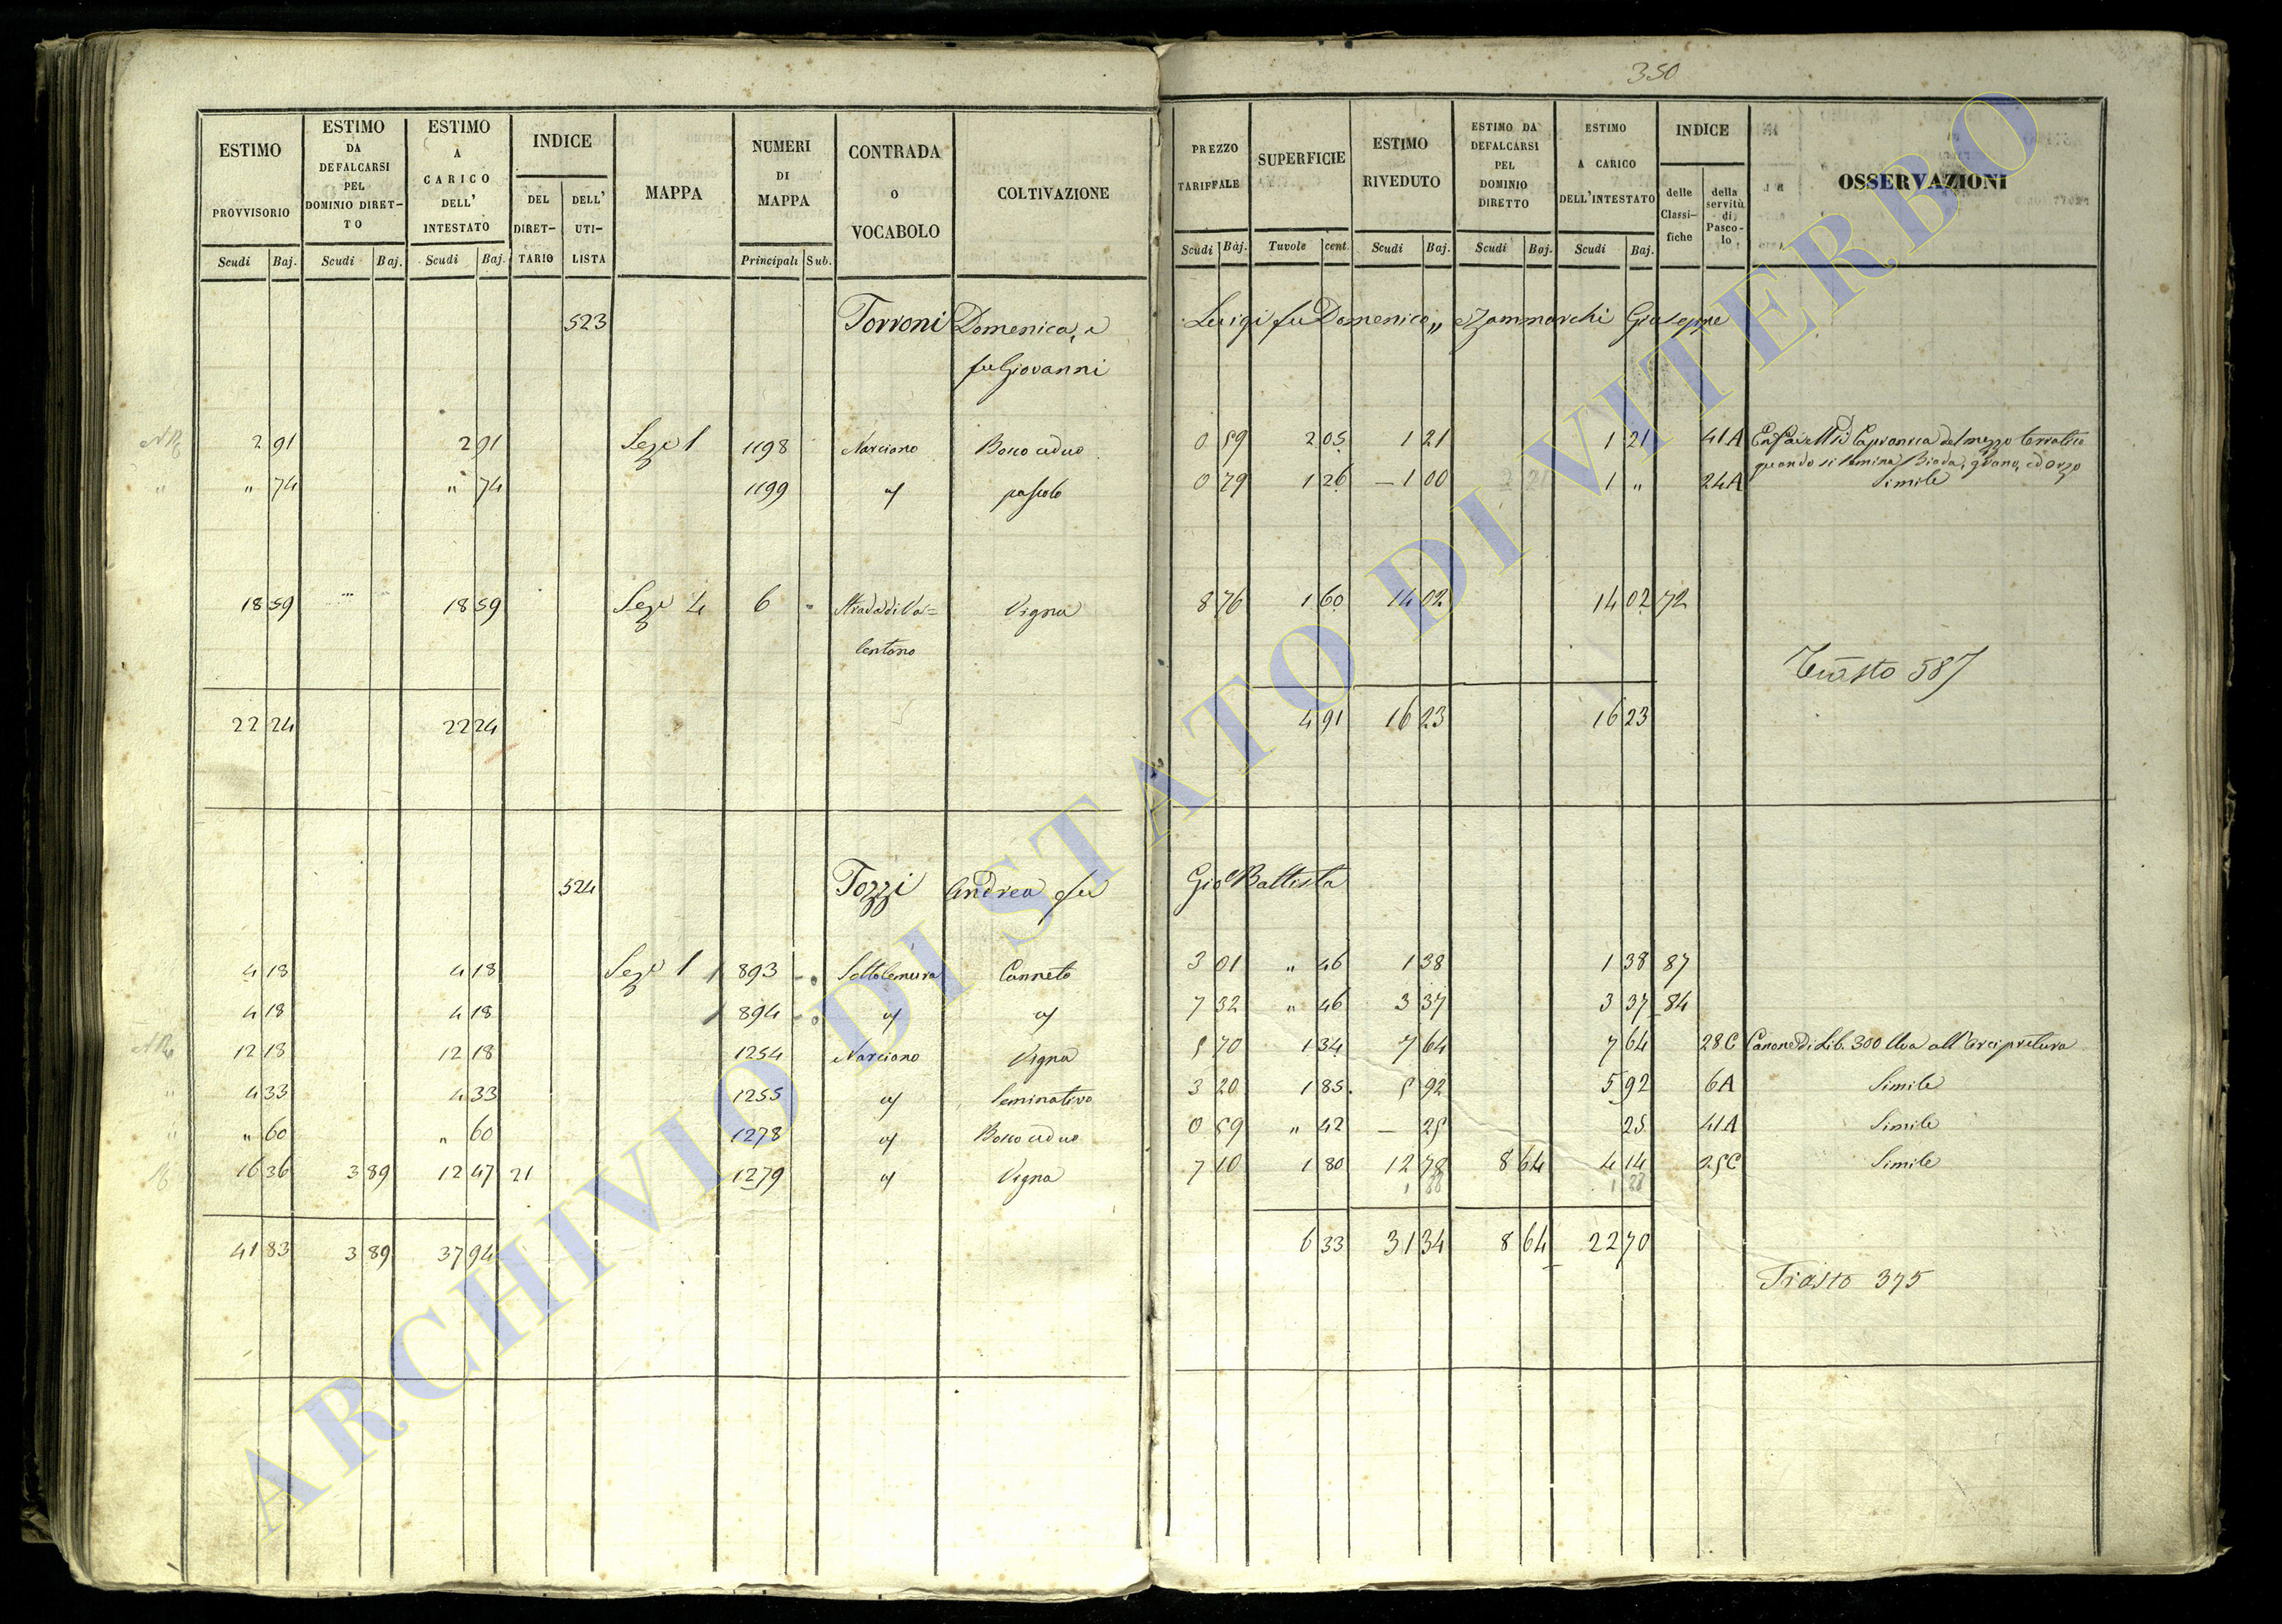 350
ESTIMO PROVVISORIO Scudi Baj.
ESTIMO DA DEFALCARSI PEL DOMINIO DIRETTO Scudi Baj.
ESTIMO A CARICO DELL' INTESTATO Scudi Baj.
INDICE DEL DIRETTARIO DELL' UTILISTA
MAPPA
NUMERI DI MAPPA Principali Sub.
CONTRADA O VOCABOLO
COLTIVAZIONE
PREZZO TARIFFALE Scudi Baj.
SUPERFICIE Tavole cent.
ESTIMO RIVEDUTO Scudi Baj.
ESTIMO DA DEFALCARSI PEL DOMINIO DIRETTO Scudi Baj.
ESTIMO A CARICO DELL'INTESTATO Scudi Baj.
INDICE delle Classifiche della servitù di Pascolo
OSSERVAZIONI
523 Torroni Domenica, e Luigi fu Domenico „ e Zammarchi Giuseppe
fu Giovanni
2 91 2 91 Seze 1 1198 Narciano Bosco ceduo 0 59 2 05 1 21 1 21 41A di Capranica del mezzo terratico
quando si semina Biada, grano, ed orzo
" 74 " 74 1199 " pascolo 0 79 1 26 — 1 00 1 " 24A Simile
18 59 18 59 Seze 4 6 Strada di Va=
lentano Vigna 8 76 1 60 14 02 14 02 72
Trasto 587
22 24 22 24 4 91 16 23 16 23
524 Tozzi Andrea fu Gio Battista
4 18 4 18 Seze 1 893 Sottolemura Canneto 3 01 " 46 1 38 1 38 87
4 18 4 18 894 " " 7 32 " 46 3 37 3 37 84
12 18 12 18 1254 Narciano Vigna 5 70 1 34 7 64 7 64 28C Canone di Lib. 300 Uva all'Arcipretura
4 33 4 33 1255 " Seminativo 3 20 1 85 5 92 5 92 6A Simile
" 60 " 60 1278 " Bosco ceduo 0 59 " 42 — 25 25 41A Simile
16 36 3 89 12 47 21 1279 " Vigna 7 10 1 80 12 78 8 64 4 14 25C Simile
41 83 3 89 37 94 6 33 31 34 8 64 22 70
Trasto 375
ARCHIVIO DI STATO DI VITERBO